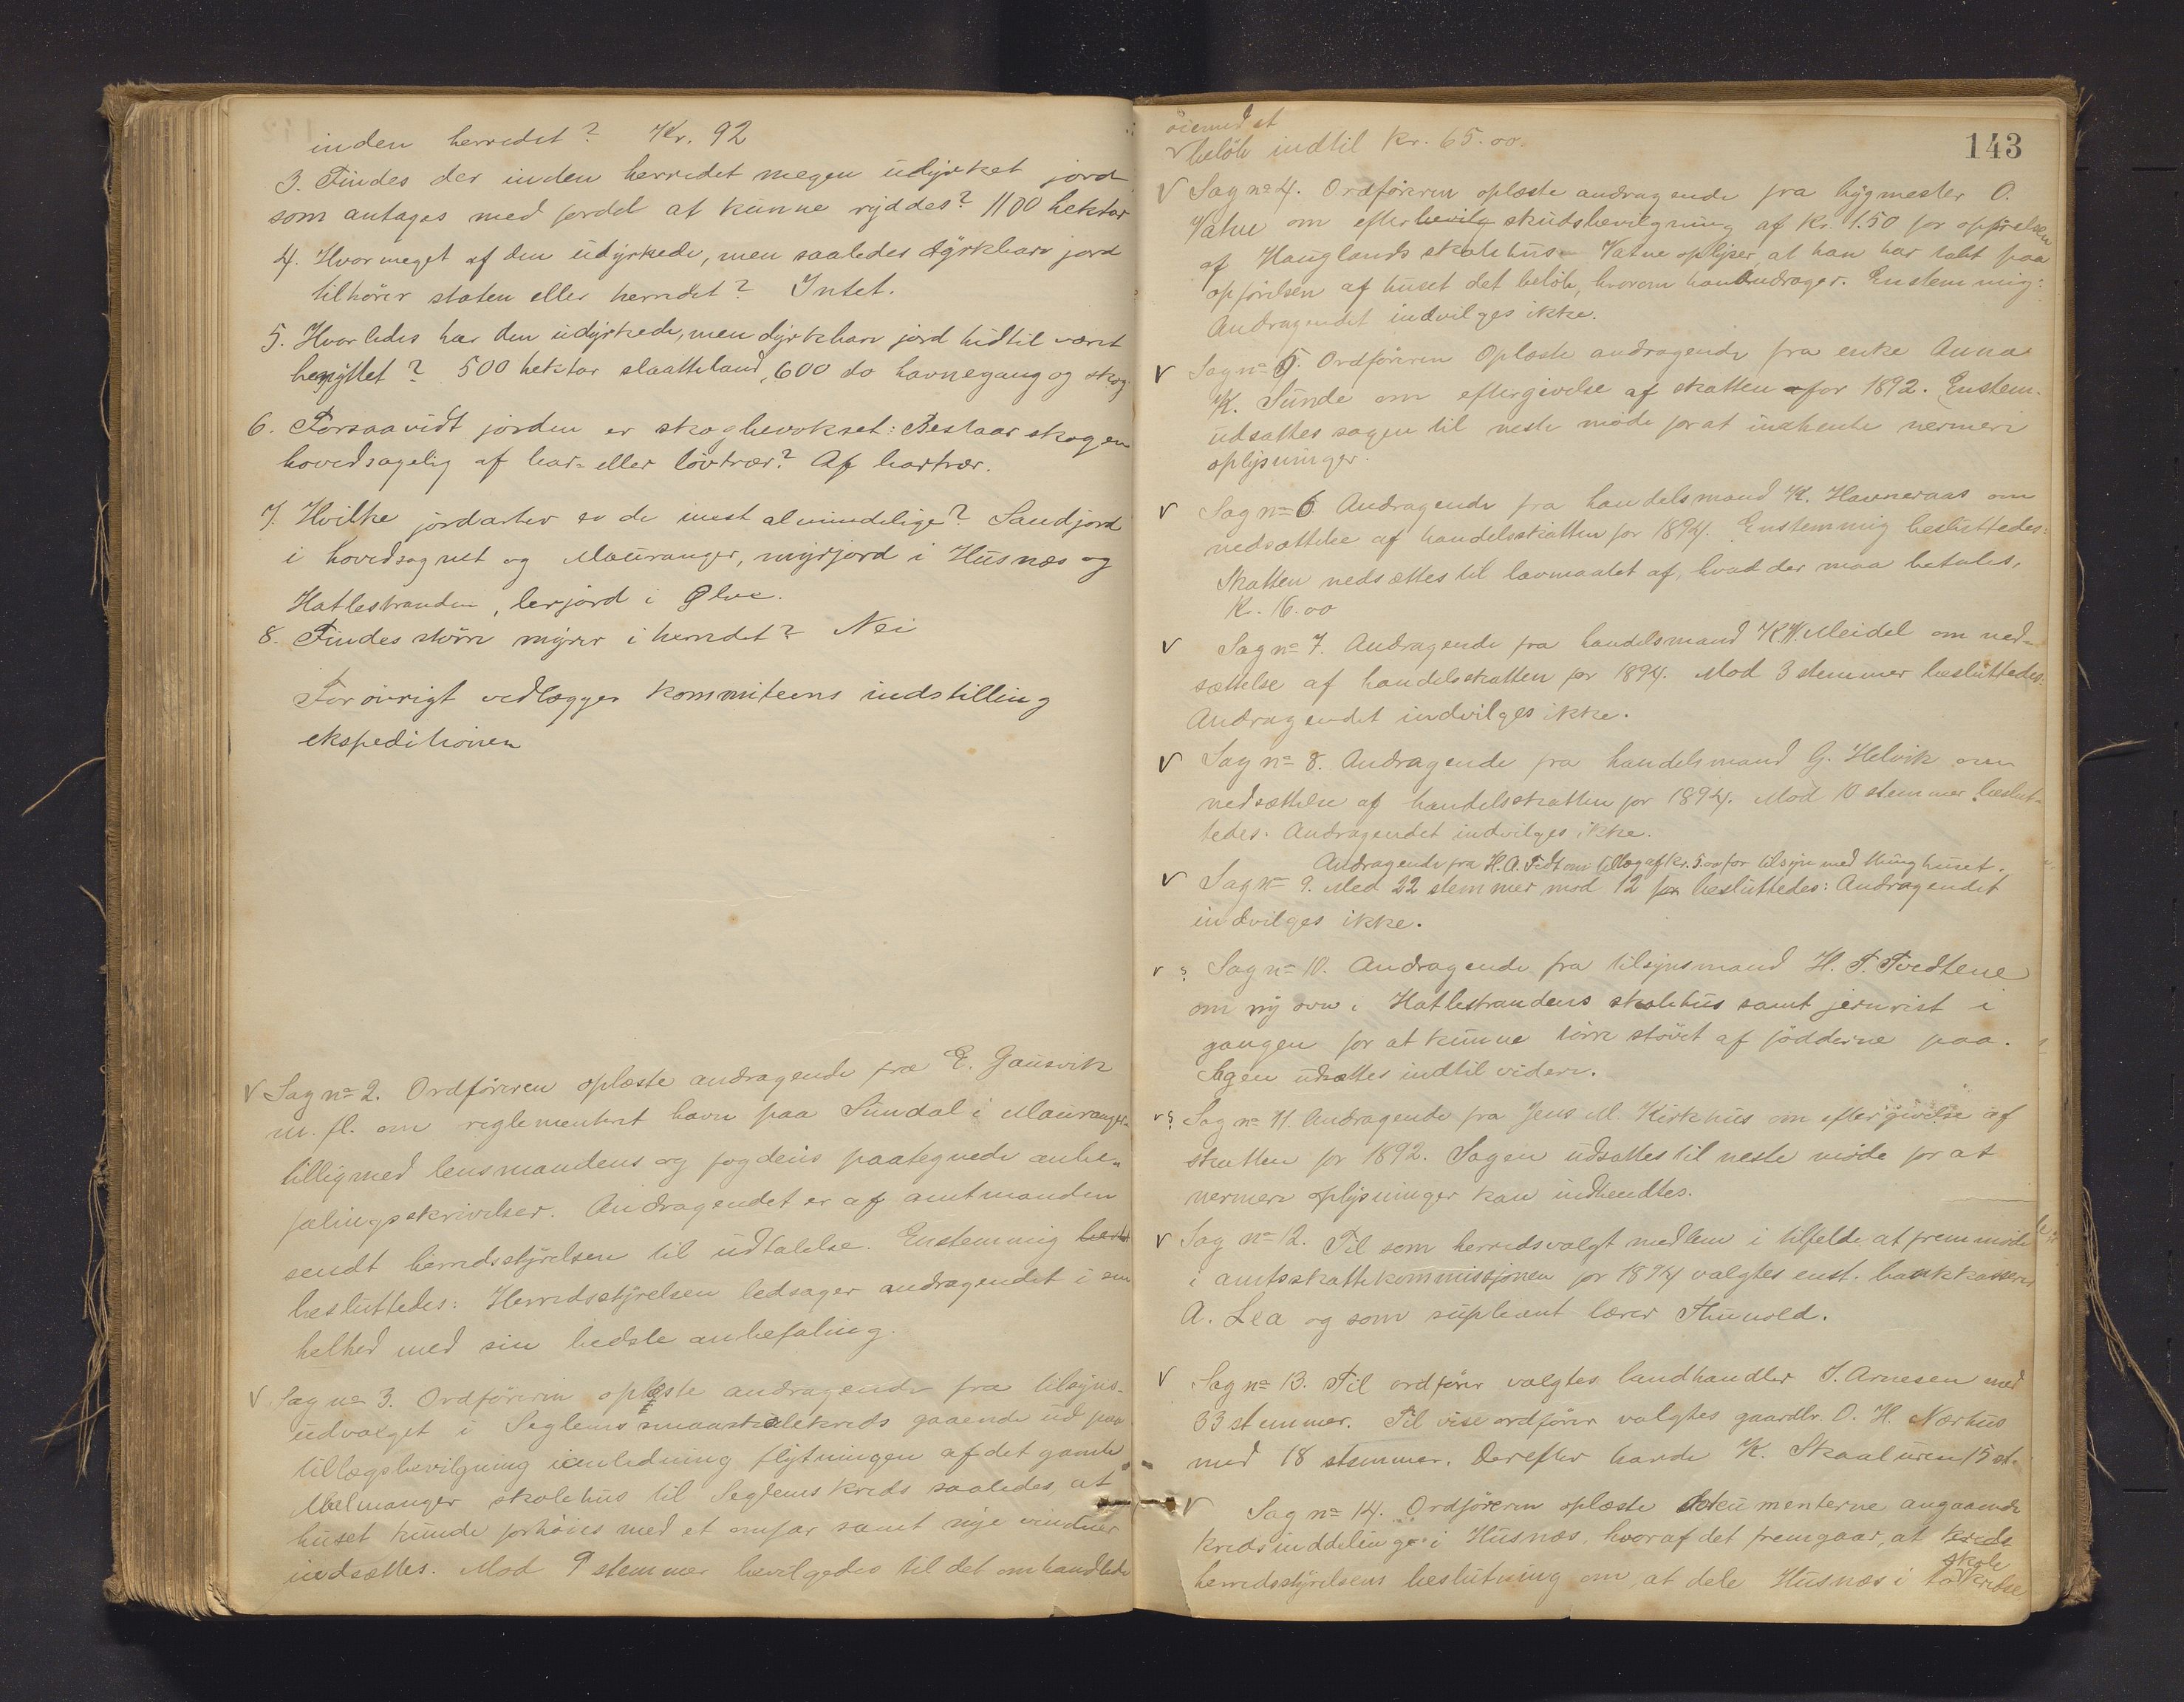 inden herredet? Kr. 92
3. Findes der inden herredet megen udyrket jord
som antages med fordel at kunne ryddes? 1100 hektar
4. Hvormeget af den udyrkede, men saaledes dyrkbare jord
tilhører staten eller herredet? Intet.
5. Hvorledes har den udyrkede, men dyrkbare jord hidtil været
benyttet? 500 hektar slaatteland, 600 do havnegang og skog.
6. Forsaavidt jorden er skogbevokset: Bestaar skogen
hovedsagelig af bar- eller løvtrær? Af bartrær.
7. Hvilke jordarter er de mest almindelige? Sandjord
i hovedsognet og Mauranger, myrjord i Husnæs og
Hatlestranden, lerjord i Ølve.
8. Findes større myrer i herredet? Nei
Forøvrigt vedlægges kommiteens indstilling
ekspeditionen
V Sag no 2. Ordføreren oplæste andragende fra E. Gausvik
m. fl. om reglementeret havn paa Sundal i Mauranger
tilligemed lensmandens og fogdens paategnede anbe-
falingsskrivelser. Andragendet er af amtmanden
sendt herredsstyrelsen til udtalelse. Enstemmig
besluttedes: Herredsstyrelsen ledsager andragendet i sin
helhed med sin bedste anbefaling.
V Sag no 3. Ordføreren oplæste andragende fra tilsyns-
udvalget i Seglems smaaskolekreds gaaende ud paa
tillægsbevilgning i anledning flytningen af det gamle
Melmanger skolehus til Seglems kreds saaledes, at
huset kunde forhøies med et omfar samt nye vinduer
indsættes. Mod 9 stemmer bevilgedes til det omhandlede
143
øiemed et
beløb indtil kr. 65.00.
V Sag no 4. Ordføreren oplæste andragende fra bygmester O.
Vatne om efterbevilg skudsbevilgning af kr. 1.50 for opførelsen
af Hauglands skolehus. Vatne oplyser, at han har tabt paa
opførelsen af huset det beløb, hvorom han andrager. Enstemmig:
Andragendet indvilges ikke.
V Sag no 5. Ordføreren Oplæste andragende fra enke Anna
K. Sunde om eftergivelse af skatten for 1892. Enstem.
udsattes sagen til neste møde for at indhente nermere
oplysninger.
V Sag no 6 Andragende fra handelsmand K. Havneraas om
nedsættelse af handelsskatten for 1894. Enstemmig besluttedes:
Skatten nedsættes til lavmaalet af, hvad der maa betales,
Kr. 16.00
V Sag no 7. Andragende fra handelsmand K. W. Meidel om ned-
sættelse af handelsskatten for 1894. Mod 3 stemmer besluttedes:
Andragendet indvilges ikke.
V Sag no 8. Andragende fra handelsmand G. Helvik om
nedsættelse af handelsskatten for 1894. Mod 10 stemmer beslut-
tedes: Andragendet indvilges ikke.
Andragende fra H. A. Tvedt om tillæg af kr. 5.00 for tilsyn med thinghuset.
V Sag no 9. Med 22 stemmer mod 12 besluttedes: Andragendet
indvilges ikke.
V Sag no 10. Andragende fra tilsynsmand H. T. Tvedtene
om ny ovn i Hatlestrandens skolehus samt jernrist i
gangen for at kunne tørre støvet af fødderne paa.
Sagen udsættes indtil videre.
V Sag no 11. Andragende fra Jens M. Kirkhus om eftergivelse af
skatten for 1892. Sagen udsattes til neste møde for at
nermere oplysninger kan indhendtes.
V Sag no 12. Til som herredsvalgt medlem i tilfelde at fremmøde
i amtsskattekommissjonen for 1894 valgtes enst. bankkasserer
A. Lea og som supleant lærer Thunold.
V Sag no 13. Til ordfører valgtes landhandler J. Arnesen med
33 stemmer. Til viseordfører valgtes gaardbr. O. H. Nærhus
med 18 stemmer. Derefter havde K. Skaaluren 15 st.
V Sag no 14. Ordføreren oplæste dokumenterne angaaende
kredsinddelinge i Husnæs, hvoraf det fremgaar, at kreds
herredsstyrelsens beslutning om at dele Husnæs i to skolekredse